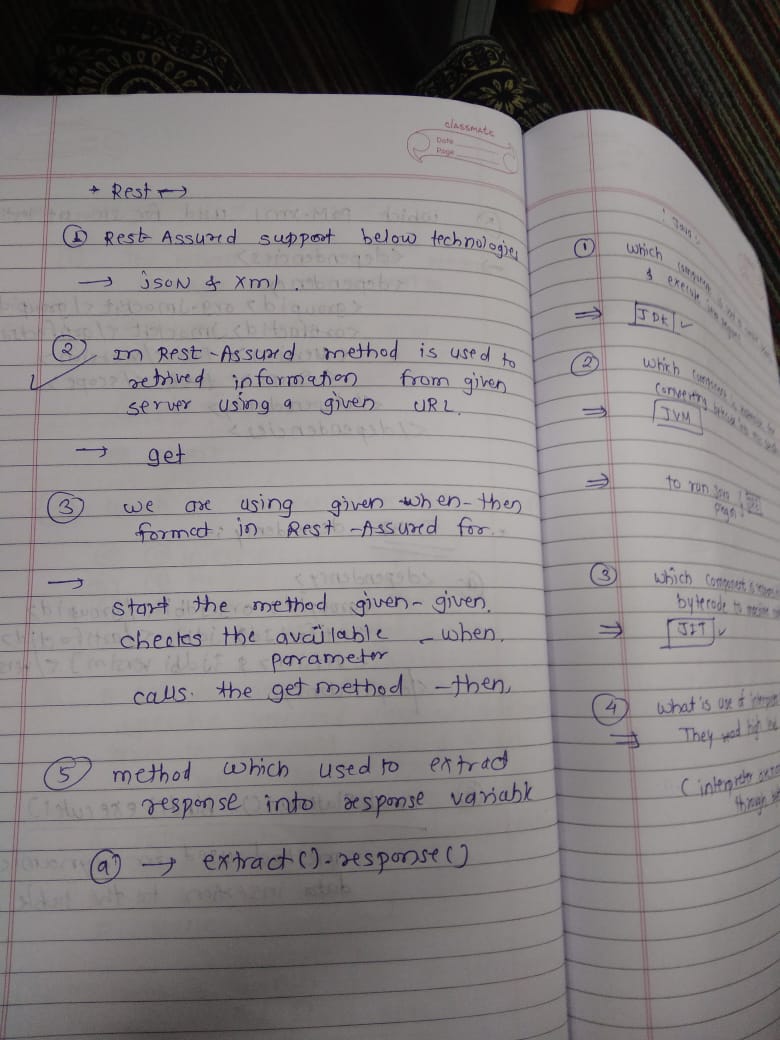 classmate
Date
Page
+ Rest →
① Rest-Assured support below technologies
→ json & xml.
② In Rest-Assured method is used to
retrived information from given
server using a given URL.
→ get
③ we are using given when-then
format in Rest-Assured for.
→
start the method given-given.
checks the available - when.
parameter
calls. the get method - then,
⑤ method which used to extract
response into response variable
ⓐ → extract().response()
① which
& execute
⇒ JDK ✓
② which component is
converting
⇒ JVM
⇒ to run
③ which component is
bytecode to machine
⇒ JIT ✓
④ what is use of
⇒ They
( interpreter
through